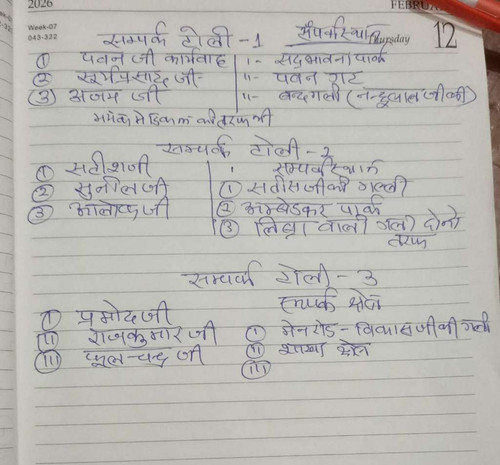 2026 FEBRUARY
Week-07
043-322
Thursday 12
सम्पर्क टोली - 1 संपर्कस्थान
① पवन जी कार्यवाह ।- सदभावना पार्क
② सूर्यप्रसाद जी- ॥- पवन
③ अजय जी ॥- बन्दगली (नन्दूलाल जी की)
सम्पर्क टोली - 2
① सतीशजी । सम्पर्कस्थान
② सुनीलजी ① सतीसजी की गल्ली
③ आलोकजी ② अम्बेडकर पार्क
③ वाली गली दोनो
तरफ
सम्पर्क टोली - 3
① प्रमोदजी सम्पर्क क्षेत्र
(II) राजकुमार जी ① मेनरोड - विकासजी की गली
(III) फूलचन्द्र जी (II) शाखा क्षेत्र
(III)